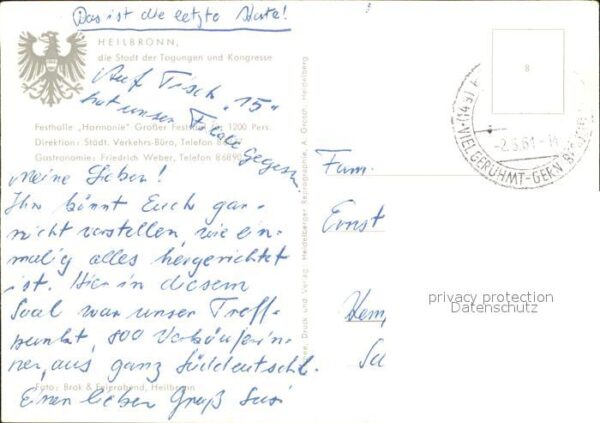 Das ist die letzte Karte!
HEILBRONN,
die Stadt der Tagungen und Kongresse
Auf Tisch "15"
hat unser Filiale gegessen
Festhalle "Harmonie" Großer Festsaal für 1200 Pers.
Direktion: Städt. Verkehrs-Büro, Telefon
Gastronomie: Friedrich Weber, Telefon 86890
Meine Lieben!
Ihr könnt Euch gar
nicht vorstellen, wie ein-
malig alles hergerichtet
ist. Hier in diesem
Saal war unser Treff-
punkt, 800 Verkäuferin-
nen, aus ganz Süddeutschl.
Foto: Brok & Feierabend, Heilbronn
Einen lieben Gruß Susi
Druck und Verlag: Heidelberger Reprographie, A. Grosch, Heidelberg
8
VIELGERÜHMT-GERN
Fam.
Ernst
privacy protection
Datenschutz